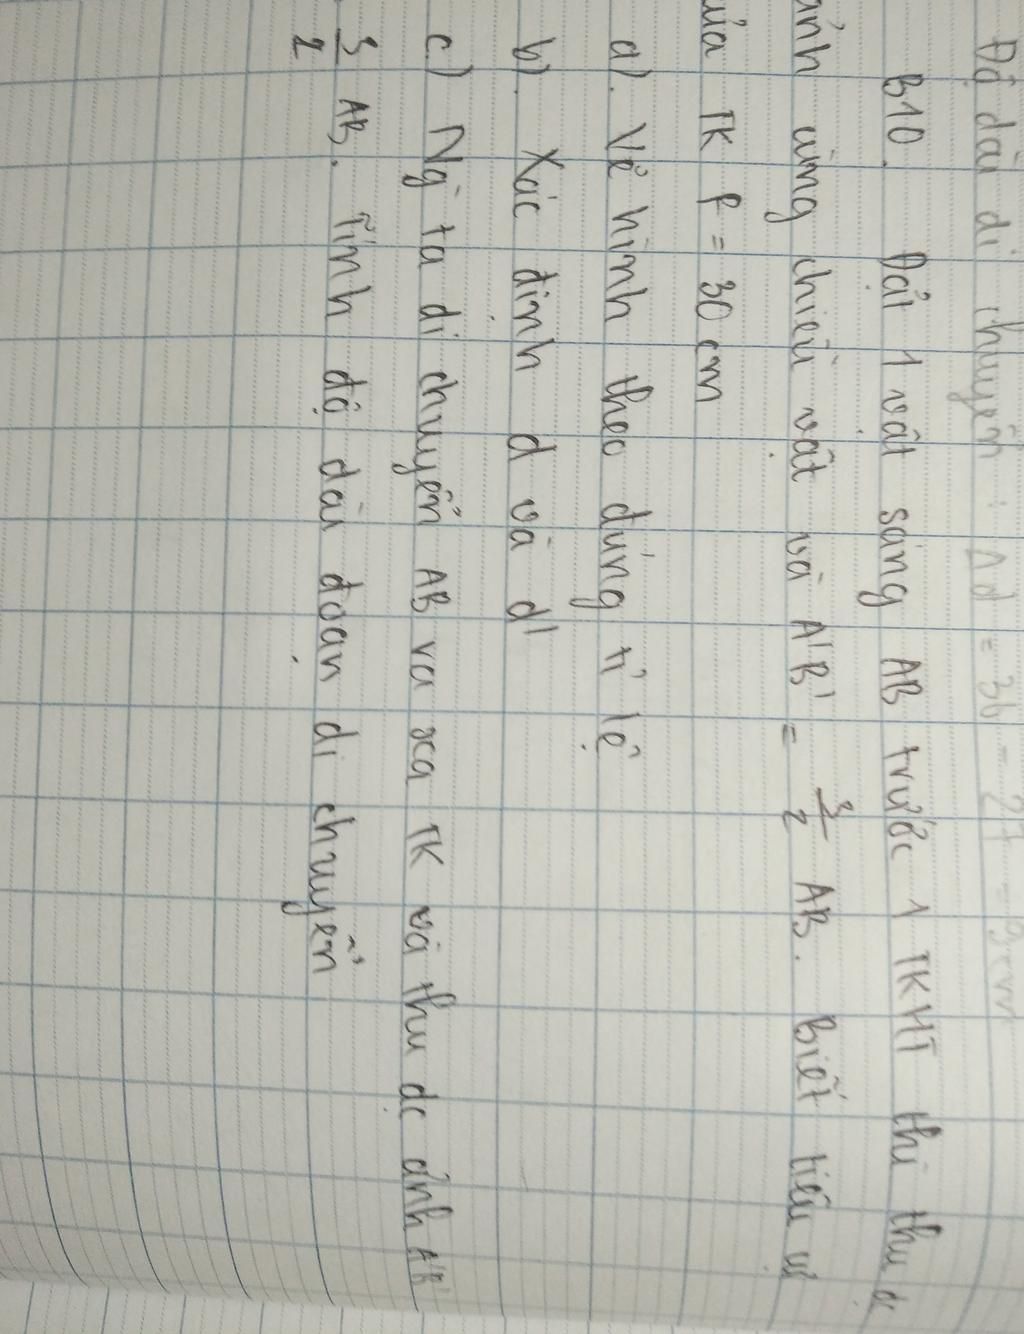 Độ dài di chuyển: Δd = 36 - 27 = 9cm
B10. Đặt 1 vật sáng AB trước 1 TKHT thì thu đc
ảnh cùng chiều vật và A'B' = 3/2 AB. Biết tiêu cự
của TK f = 30 cm
a). Vẽ hình theo đúng tỉ lệ
b). Xác định d và d'
c) Ng ta di chuyển AB ra xa TK và thu đc ảnh A'B'
3/2 AB. Tính độ dài đoạn di chuyển